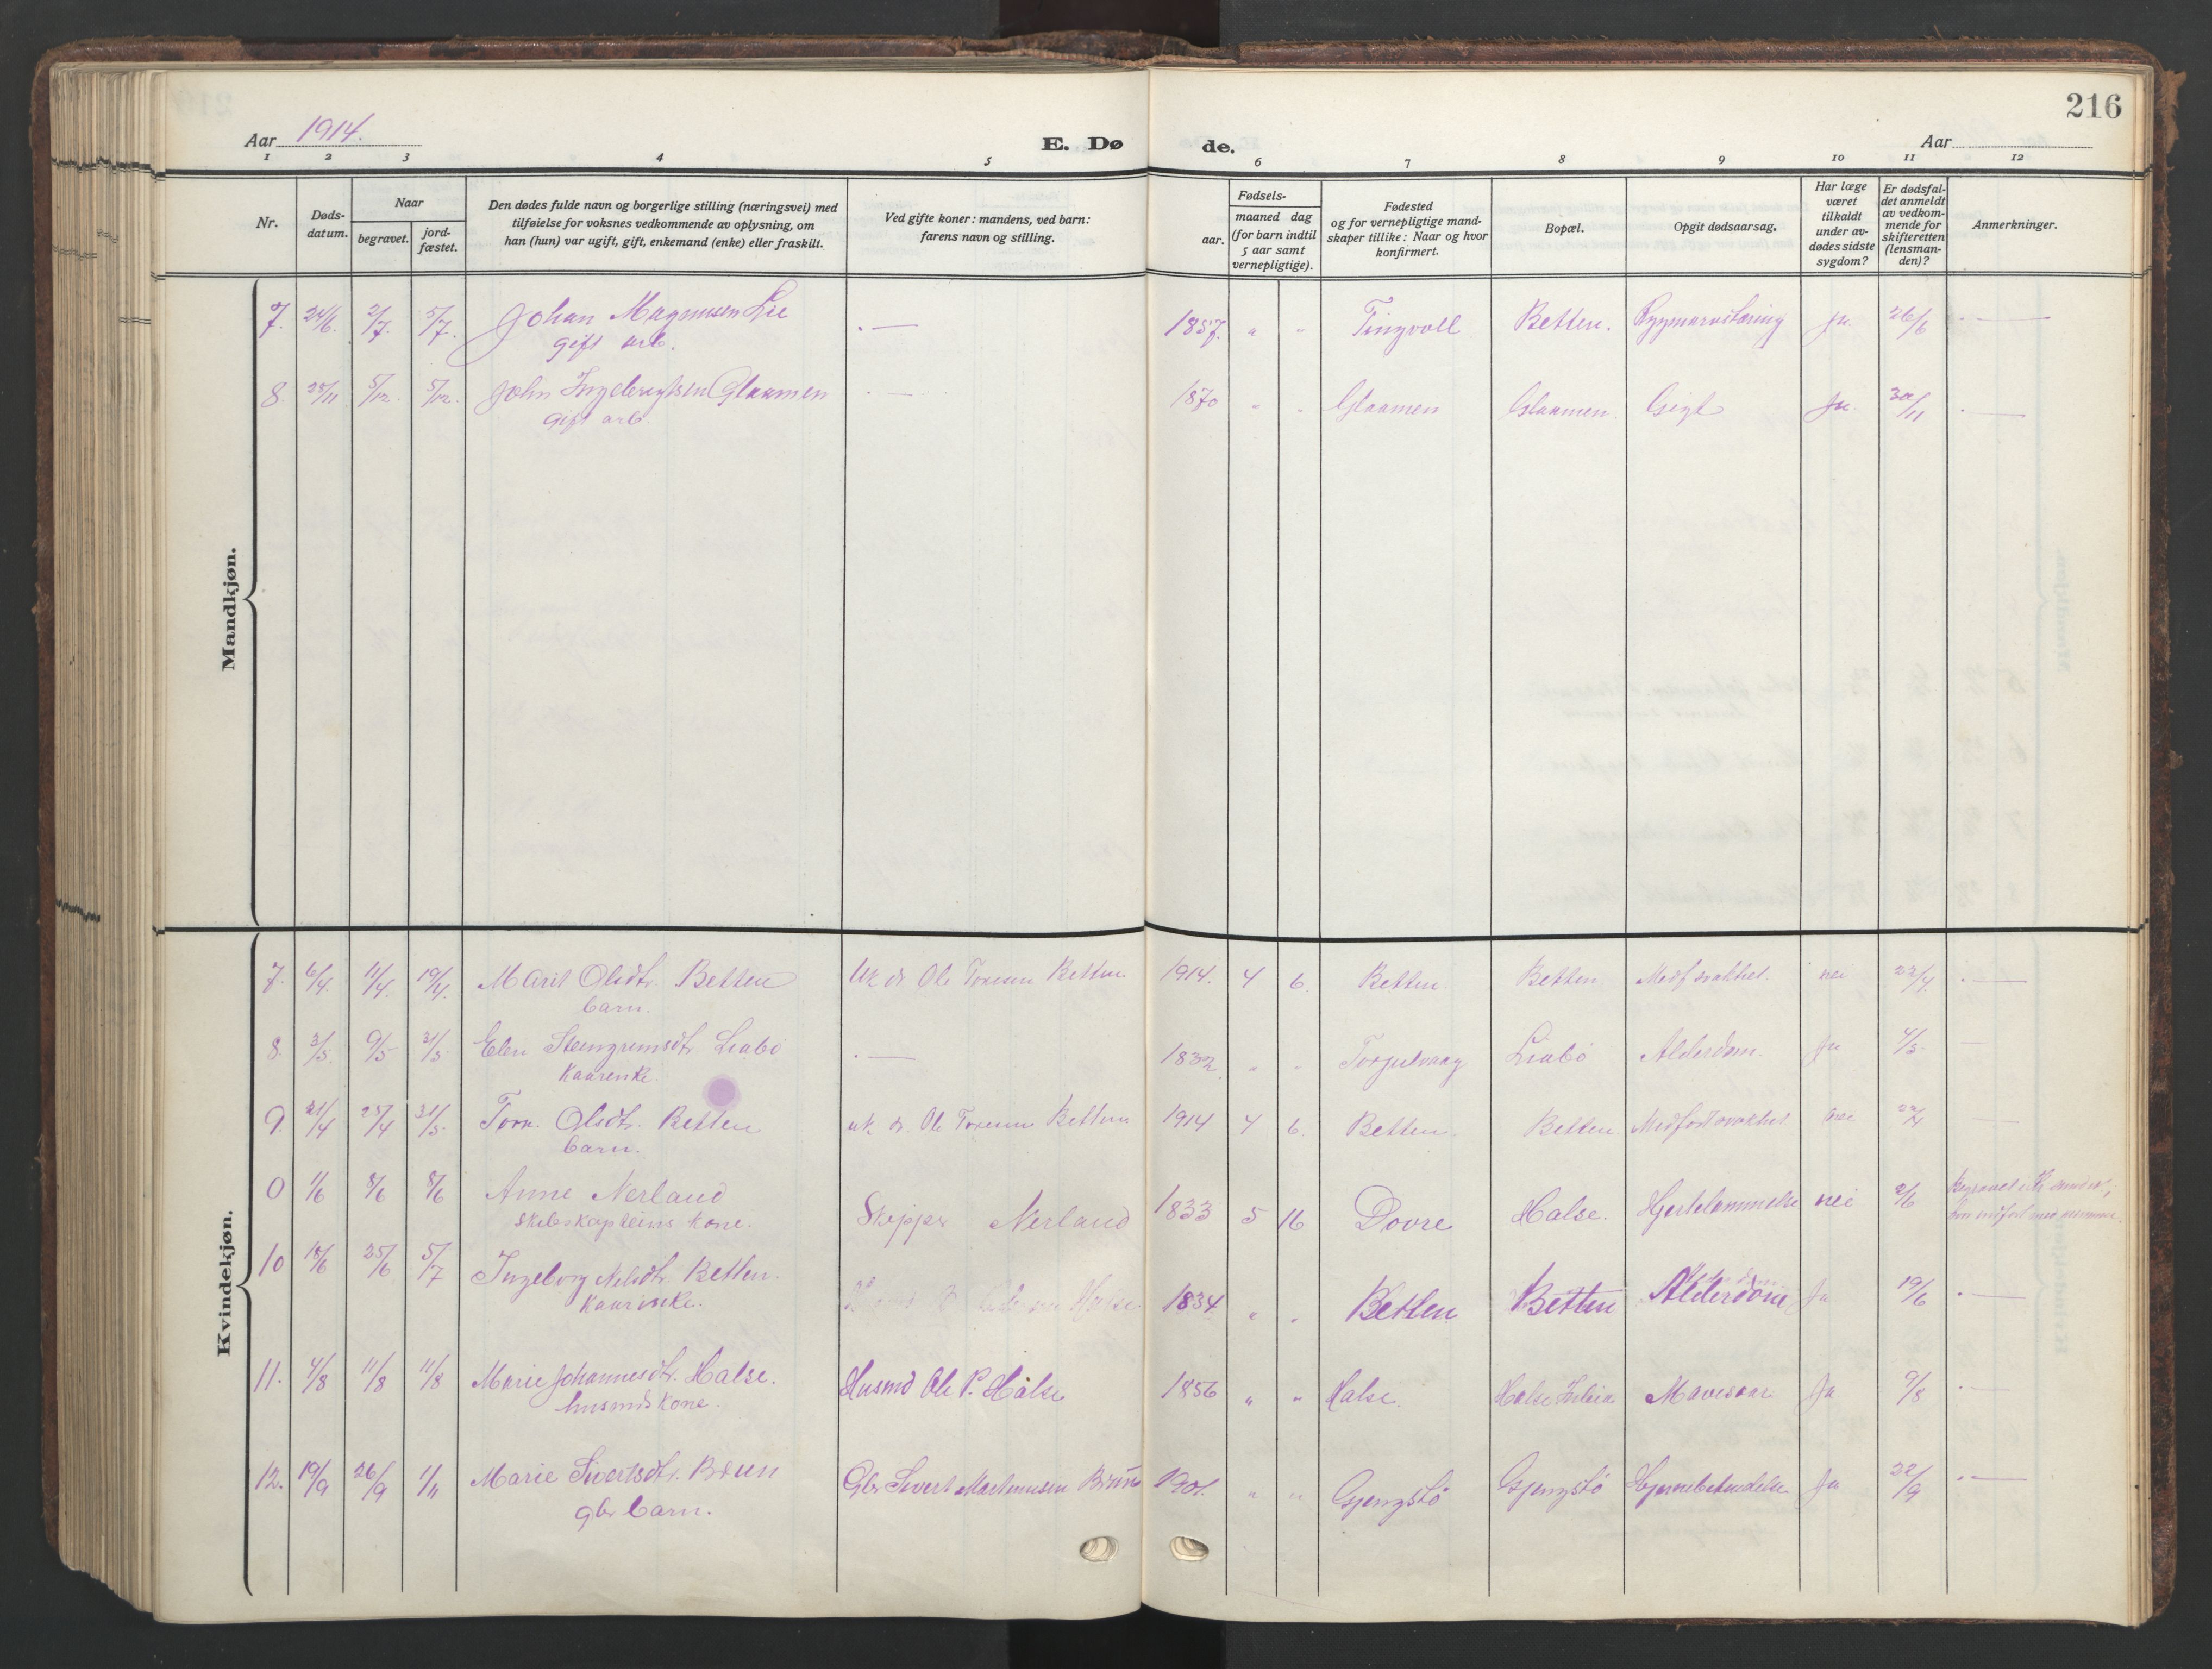 216
Aar 1914.
E. Dø de.
Aar
1 2 3 4 5 6 7 8 9 10 11 12
Nr.
Døds-
datum.
Naar
begravet.
jord-
fæstet.
Den dødes fulde navn og borgerlige stilling (næringsvei) med
tilføielse for voksnes vedkommende av oplysning, om
han (hun) var ugift, gift, enkemand (enke) eller fraskilt.
Ved gifte koner: mandens, ved barn:
farens navn og stilling.
Fødsels-
aar.
maaned dag
(for barn indtil
5 aar samt
vernepligtige).
Fødested
og for vernepligtige mand-
skaper tillike: Naar og hvor
konfirmert.
Bopæl.
Opgit dødsaarsag.
Har læge
været
tilkaldt
under av-
dødes sidste
sygdom?
Er dødsfal-
det anmeldt
av vedkom-
mende for
skifteretten
(lensman-
den)?
Anmerkninger.
Mandkjøn.
7. 24/6. 2/7. 5/7. Johan Magnusen Lie 1857. " " Tingvoll Betten. Rygmarvstæring Ja. 26/6
gift arb.
8. 25/11 5/12. 5/12. John Ingebrigtsen Glaamen 1870 " " Glaamen Glaamen Gigt Ja. 30/11
gift arb.
Kvindekjøn.
7. 6/4. 11/4. 19/4. Marit Olsdtr. Betten Uk dr Ole Toresen Betten 1914. 4 6. Betten Betten Medf svakhet. nei 22/4
barn.
8. 3/5. 9/5 31/5. Elen Steingrimsdtr Liabö 1832. " " Torjulvaag Liabö Alderdom. Ja 4/5
Kaarenke.
9. 21/4 25/4 31/5. Tora Olsdtr. Betten uk. dr. Ole Toresen Betten 1914 4 6. Betten. Betten Medfødt svakhet nei 22/4
barn.
0 1/6 8/6 8/6 Anne Nerland Skipper Nerland 1833 5 16 Dovre Halse. Hjertelammelse nei 2/6 Begravet i
Skibskapteins Kone.
10 18/6 25/6 5/7 Ingeborg Nilsdtr. Betten. 1834 " " Betten Betten Alderdom Ja 19/6
Kaarenke.
11. 4/8 11/8 11/8 Marie Johannesdtr. Halse. Husmd Ole P. Halse 1856 " " Halse. Halse Mavesaar Ja 9/8
husmdskone.
12. 19/9 26/9 1/11 Marie Sivertsdtr. Bruun Gbr Sivert Martinusen Bruun 1901. " " Gjengstö Gjengstö Hjernebetendelse Ja 22/9
gbr barn.